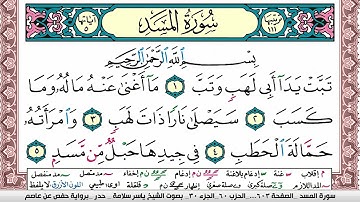 سُورَةُ المَسَدِ
ترتيبها ١١١
آياتها ٥
بِسْمِ اللَّهِ الرَّحْمَٰنِ الرَّحِيمِ
تَبَّتْ يَدَا أَبِي لَهَبٍ وَتَبَّ ١ مَا أَغْنَىٰ عَنْهُ مَالُهُ وَمَا
كَسَبَ ٢ سَيَصْلَىٰ نَارًا ذَاتَ لَهَبٍ ٣ وَامْرَأَتُهُ
حَمَّالَةَ الْحَطَبِ ٤ فِي جِيدِهَا حَبْلٌ مِّن مَّسَدٍ ٥
سورة المسد الصفحة ٦٠٣ الحزب ٦٠ الجزء ٣٠ بصوت الشيخ ياسر سلامة حدر برواية حفص عن عاصم